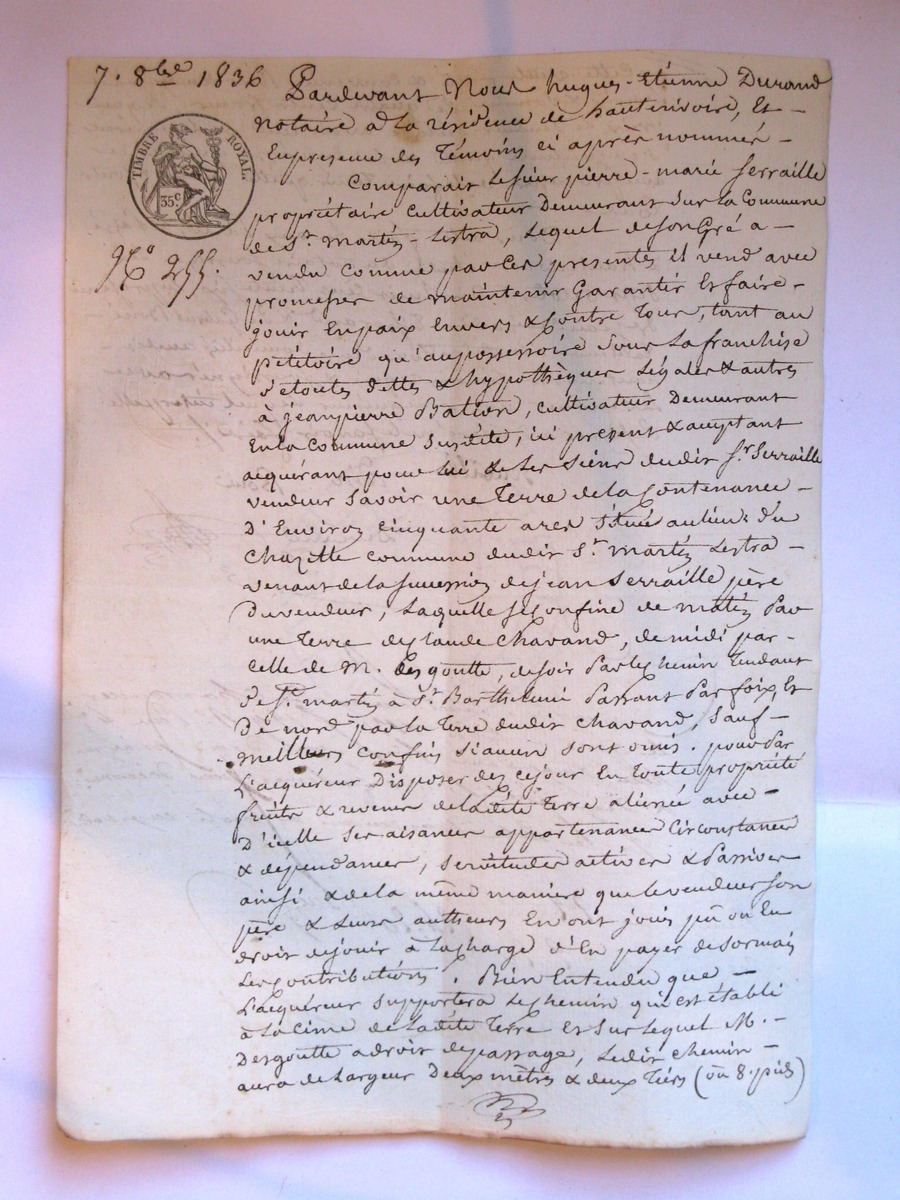 7. 8bre 1836
TIMBRE ROYAL.
35c
No 255.
Pardevant Nous hugues-Etienne Durand
notaire à la résidence de hauterivoire, Et
Enpresence des Témoins ci après nommés
Comparait Lesieur pierre-marie Serraille
propriétaire cultivateur Demeurant sur la Commune
de St martin-Lestra, Lequel de son Gré a
vendu comme parces presentes il vend avec
promesses de maintenir Garantir Et faire
jouir En paix Envers & Contre Tous, tant au
pétitoire qu'aupossessoire sous la franchise
detoutes dettes & hypothèques Légales & autres
à jeanpierre Bation, cultivateur Demeurant
En la commune susdite, ici present & acceptant
acquérant pour lui & les siens dudit sr Serraille
vendeur savoir une Terre de la Contenance
D'Environ cinquante ares située au lieu du
Chazette commune dudit St martin Lestra
venant de la succession de jean Serraille père
Du vendeur, Laquelle se confine de matin Par
une Terre de Claude Chavand, de midi par
celle de M. desgoutte, de soir Par le chemin Tendant
De St martin à St Barthelemi Passant Par foix, Et
De nord par la Terre dudit chavand, Sauf
meilleurs confins si aucun sont omis. pour Par
L'acquéreur Disposer dès ce jour En Toute propriété
fruits & revenus de ladite Terre aliénée avec
D'icelle ses aisances appartenances Circonstances
& dépendances, servitudes actives & Passives
ainsi & de la même manière que le vendeur son
père & Leurs autheurs En ont joui pu ou En
droit de jouir à la charge d'En payer desormais
Les Contributions. Bien Entendu que
L'acquéreur supportera Le chemin qui est établi
à la Cime de ladite Terre Et sur Lequel M.
Desgoutte a droit de passage, Ledit chemin
aura de Largeur Deux mètres & deux Tiers (ou 8. pieds)